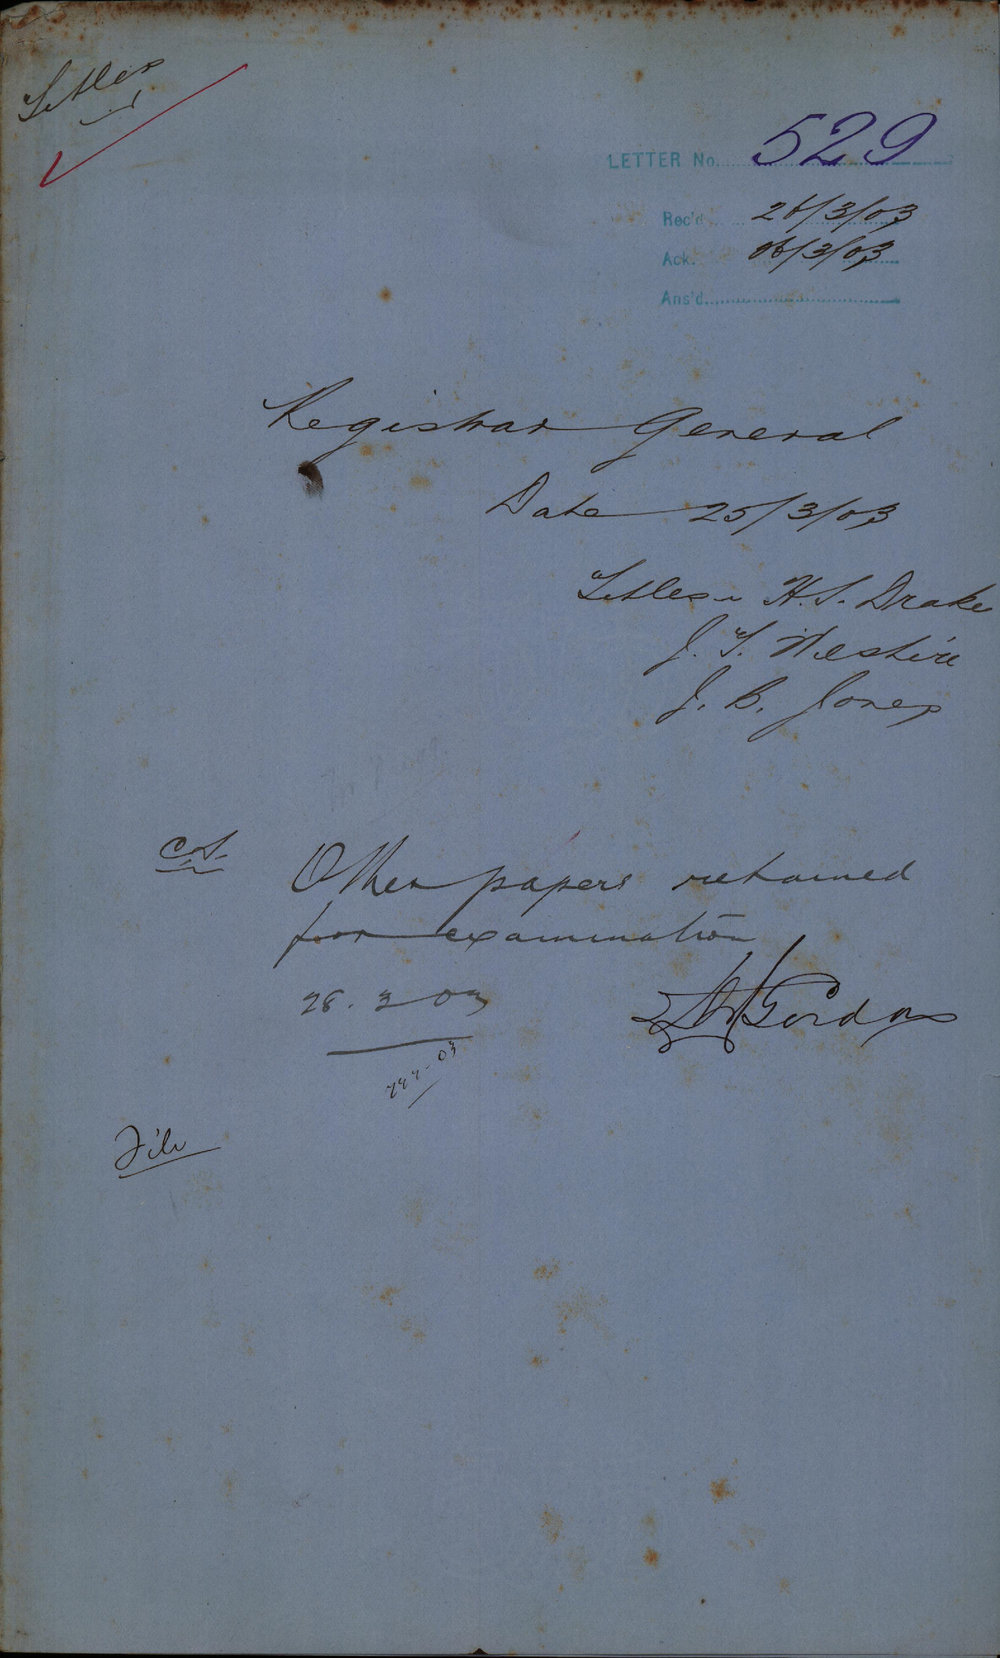 Titles
LETTER No. 529
Rec'd 26/3/03
Ack. 26/3/03
Ans'd
Registrar General
Date 25/3/03
Titles H. S. Drake
J. T. Weshire
J. B. Jones
C.S. Other papers retained
for examination
28.3 03
Gordon
File